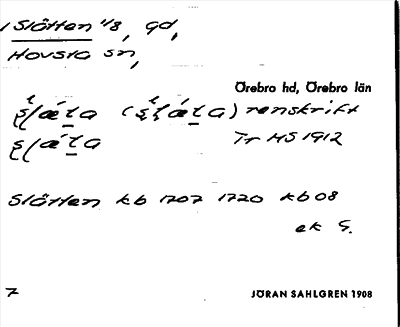 1 Slätten 1/8, gd,
Hovsta sn,
Örebro hd, Örebro län
renskrift
Tr HS 1912
Slätten kb 1707 1720 kb 08
ek S.
7
JÖRAN SAHLGREN 1908